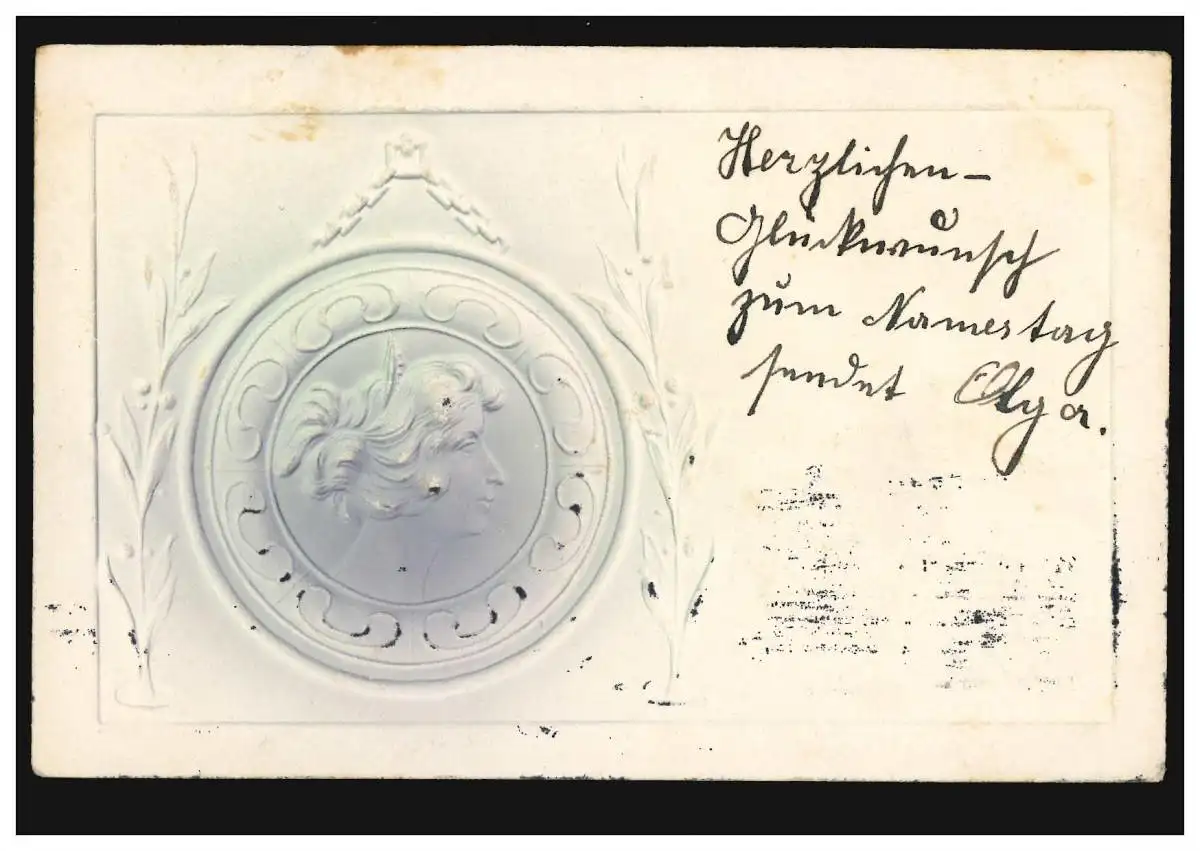 Herzlichen–
Glückwunsch
zum Namestag
sendet Olga.